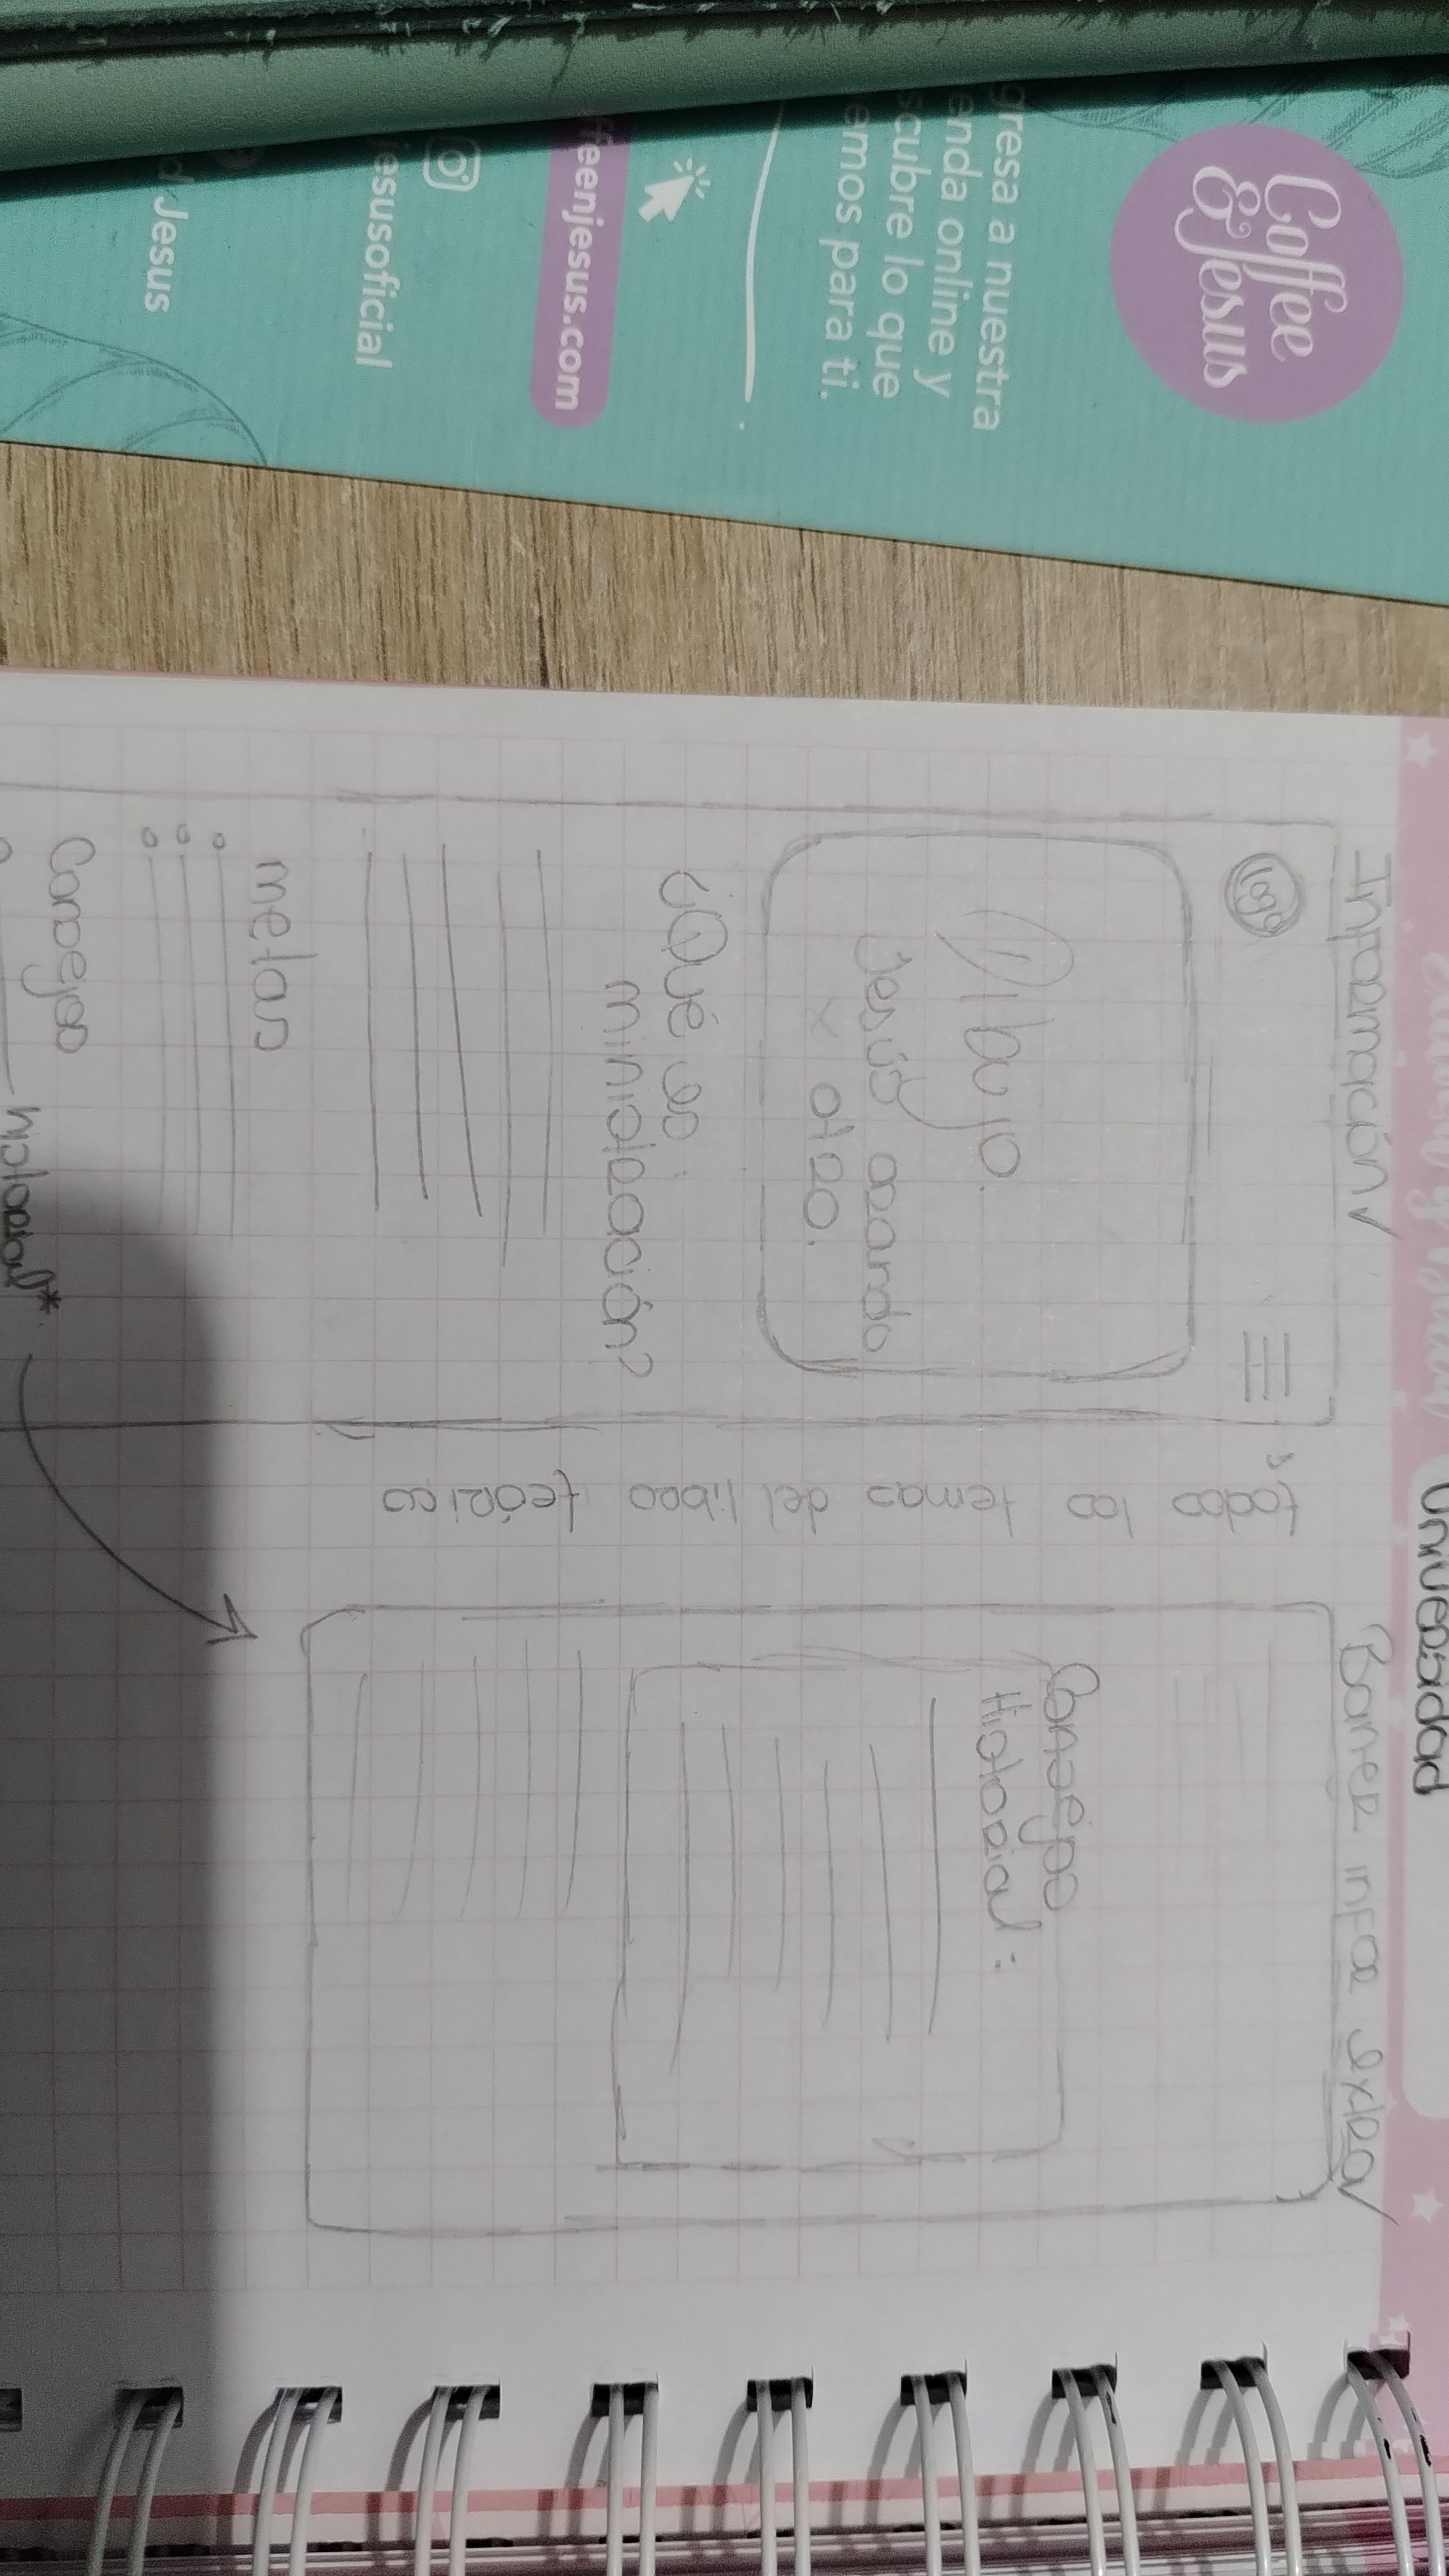 Coffee
& Jesus
gresa a nuestra
enda online y
scubre lo que
emos para ti.
ffeenjesus.com
jesusoficial
d Jesus
Universidad
Información
logo
Dibujo.
Jesús orando
x otro.
¿Qué es
ministración?
metas
Consejos
historial*
todos los temas del libro teórico
Banner infor extra
Consejos
Historial: